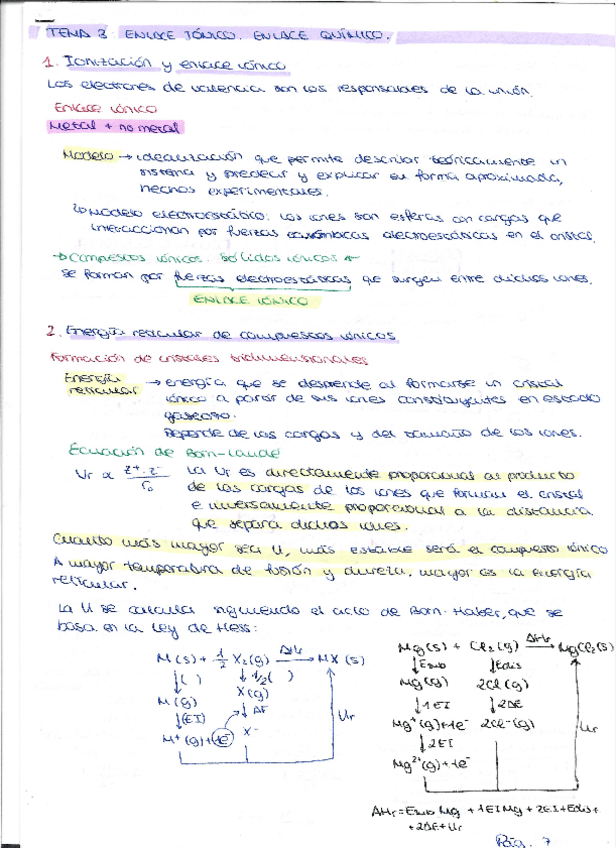 TEMA 3: ENLACE IÓNICO. ENLACE QUÍMICO.
1. Ionización y enlace iónico
Los electrones de valencia son los responsables de la unión.
Enlace iónico
Metal + no metal
Modelo → idealización que permite describir teóricamente un
sistema y predecir y explicar su forma aproximada,
hechos experimentales.
↳ Modelo electrostático: los iones son esferas con cargas que
interaccionan por fuerzas electroestáticas en el cristal.
→ Compuestos iónicos: Sólidos iónicos ←
se forman por fuerzas electroestáticas que surgen entre dichos iones.
ENLACE IÓNICO
2. Energía reticular de compuestos iónicos
Formación de cristales tridimensionales
Energía reticular → energía que se desprende al formarse un cristal
iónico a partir de sus iones constituyentes en estado
gaseoso.
Depende de las cargas y del tamaño de los iones.
Ecuación de Born-Landé
Ur ∝ z⁺·z⁻ / r₀
La Ur es directamente proporcional al producto
de las cargas de los iones que forman el cristal
e inversamente proporcional a la distancia
que separa dichos iones.
Cuanto más mayor sea U, más estable será el compuesto iónico
A mayor temperatura de fusión y dureza, mayor es la energía
reticular.
La U se calcula siguiendo el ciclo de Born-Haber, que se
basa en la Ley de Hess:
M(s) + 1/2 X₂(g) —ΔHr→ MX(s)
↓( ) ↓1/2( )
M(g) X(g)
↓(EI) ↓AE
M⁺(g)+1e⁻ X⁻
Ur
Mg(s) + Cl₂(g) —ΔHr→ MgCl₂(s)
↓Esub ↓Edis
Mg(g) 2Cl(g)
↓1EI ↓2AE
Mg⁺(g)+1e⁻ 2Cl⁻(g)
↓2EI
Mg²⁺(g)+1e⁻
Ur
ΔHr = Esub Mg + 1EI Mg + 2EI + Edis +
+ 2AE + Ur
Pág. 7